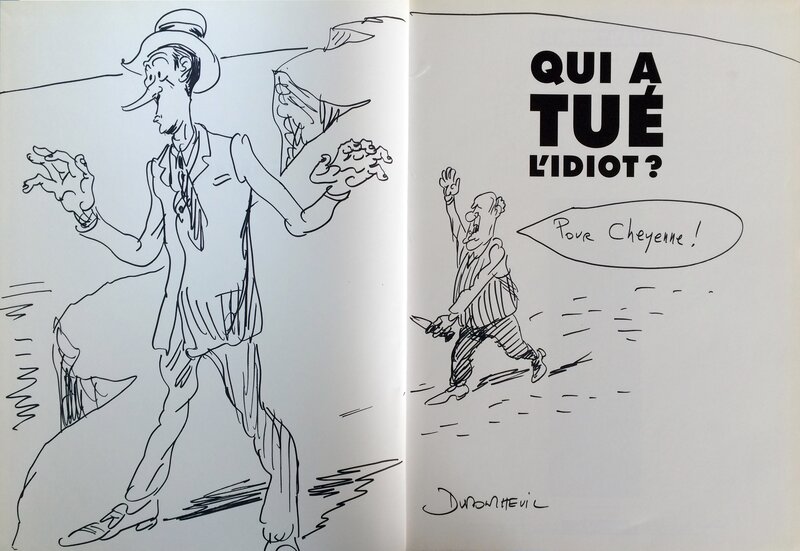 QUI A
TUÉ
L'IDIOT ?
Pour Cheyenne !
Dumontheuil